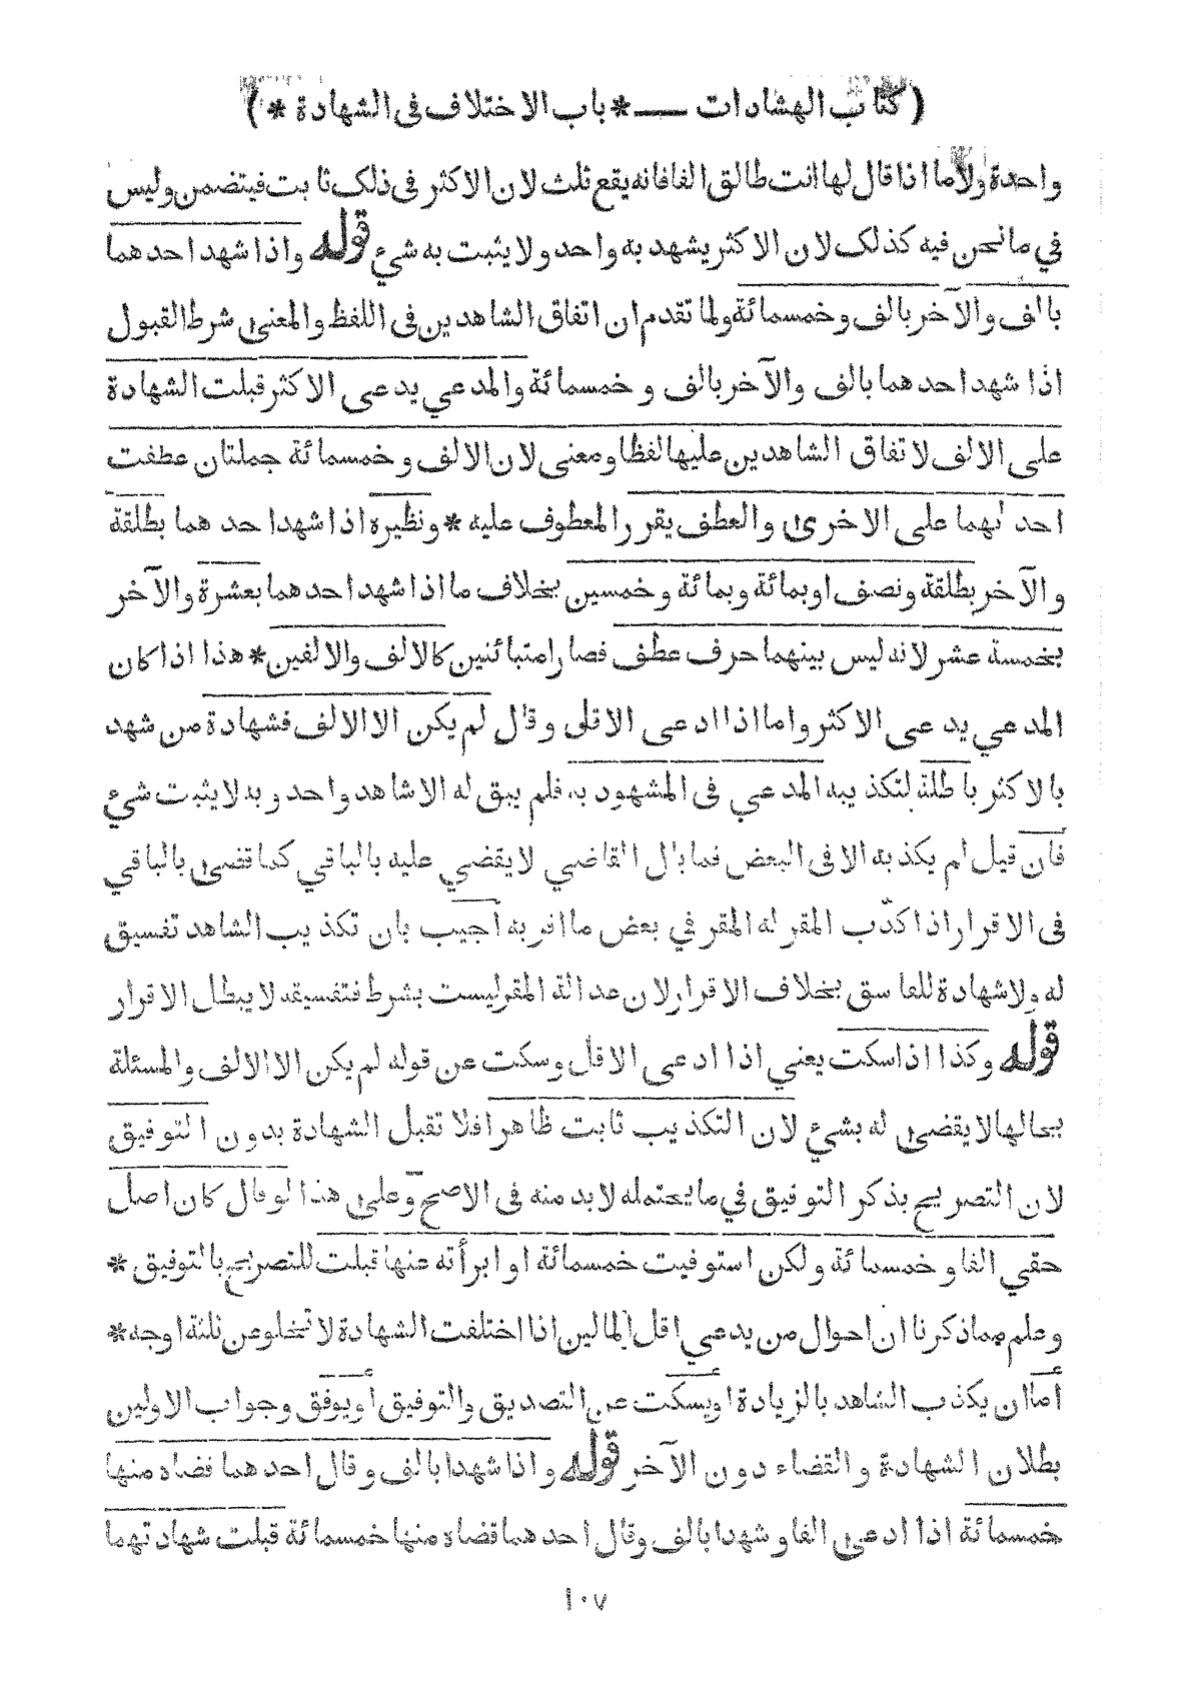 (كتاب الهشادات — * باب الاختلاف فى الشهادة *)
واحدة ولا ما اذا قال لها انت طالق الفا فانه يقع ثلث لان الاكثر فى ذلك ثابت فيتضمن وليس
في ما نحن فيه كذلك لان الاكثر يشهد به واحد ولا يثبت به شيء قوله واذا شهد احدهما
بالف والآخر بالف وخمسمائة ولما تقدم ان اتفاق الشاهدين فى اللفظ والمعنى شرط القبول
اذا شهد احدهما بالف والآخر بالف و خمسمائة والمدعي يدعى الاكثر قبلت الشهادة
على الالف لاتفاق الشاهدين عليها لفظا ومعنى لان الالف و خمسمائة جملتان عطفت
احدٮهما على الاخرى والعطف يقرر المعطوف عليه * ونظيره اذا شهد احدهما بطلقة
والآخر بطلقة ونصف او بمائة وبمائة وخمسين بخلاف ما اذا شهد احدهما بعشرة والآخر
بخمسة عشر لانه ليس بينهما حرف عطف فصارا متبائنين كالالف والالفين * هذا اذا كان
المدعي يدعى الاكثر واما اذا ادعى الاقل وقال لم يكن الا الالف فشهادة من شهد
بالاكثر باطلة لتكذيبه المدعي فى المشهود به فلم يبق له الا شاهد واحد وبه لا يثبت شيء
فان قيل لم يكذبه الا فى البعض فما بال القاضي لا يقضي عليه بالباقي كما قضى بالباقي
فى الاقرار اذا كذّب المقر له المقر في بعض ما اقر به أجيب بان تكذيب الشاهد تفسيق
له ولا شهادة للفاسق بخلاف الاقرار لان عدالة المقر ليست بشرط فتفسيقه لا يبطل الاقرار
قوله وكذا اذا سكت يعني اذا ادعى الاقل وسكت عن قوله لم يكن الا الالف والمسئلة
بحالها لا يقضى له بشيء لان التكذيب ثابت ظاهرا فلا تقبل الشهادة بدون التوفيق
لان التصريح بذكر التوفيق في ما يحتمله لا بد منه فى الاصح وعلى هذا لو قال كان اصل
حقي الفا و خمسمائة ولكن استوفيت خمسمائة او ابرأته عنها قبلت للتصريح بالتوفيق *
وعلم مما ذكرنا ان احوال من يدعي اقل المالين اذا اختلفت الشهادة لا تخلو عن ثلثة اوجه *
أما ان يكذب الشاهد بالزيادة او يسكت عن التصديق والتوفيق أو يوفق وجواب الاولين
بطلان الشهادة والقضاء دون الآخر قوله واذا شهدا بالف وقال احدهما قضاه منها
خمسمائة اذا ادعى الفا و شهدا بالف وقال احدهما قضاه منها خمسمائة قبلت شهادتهما
١٠٧